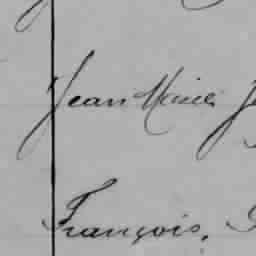 Jean Marie
François,